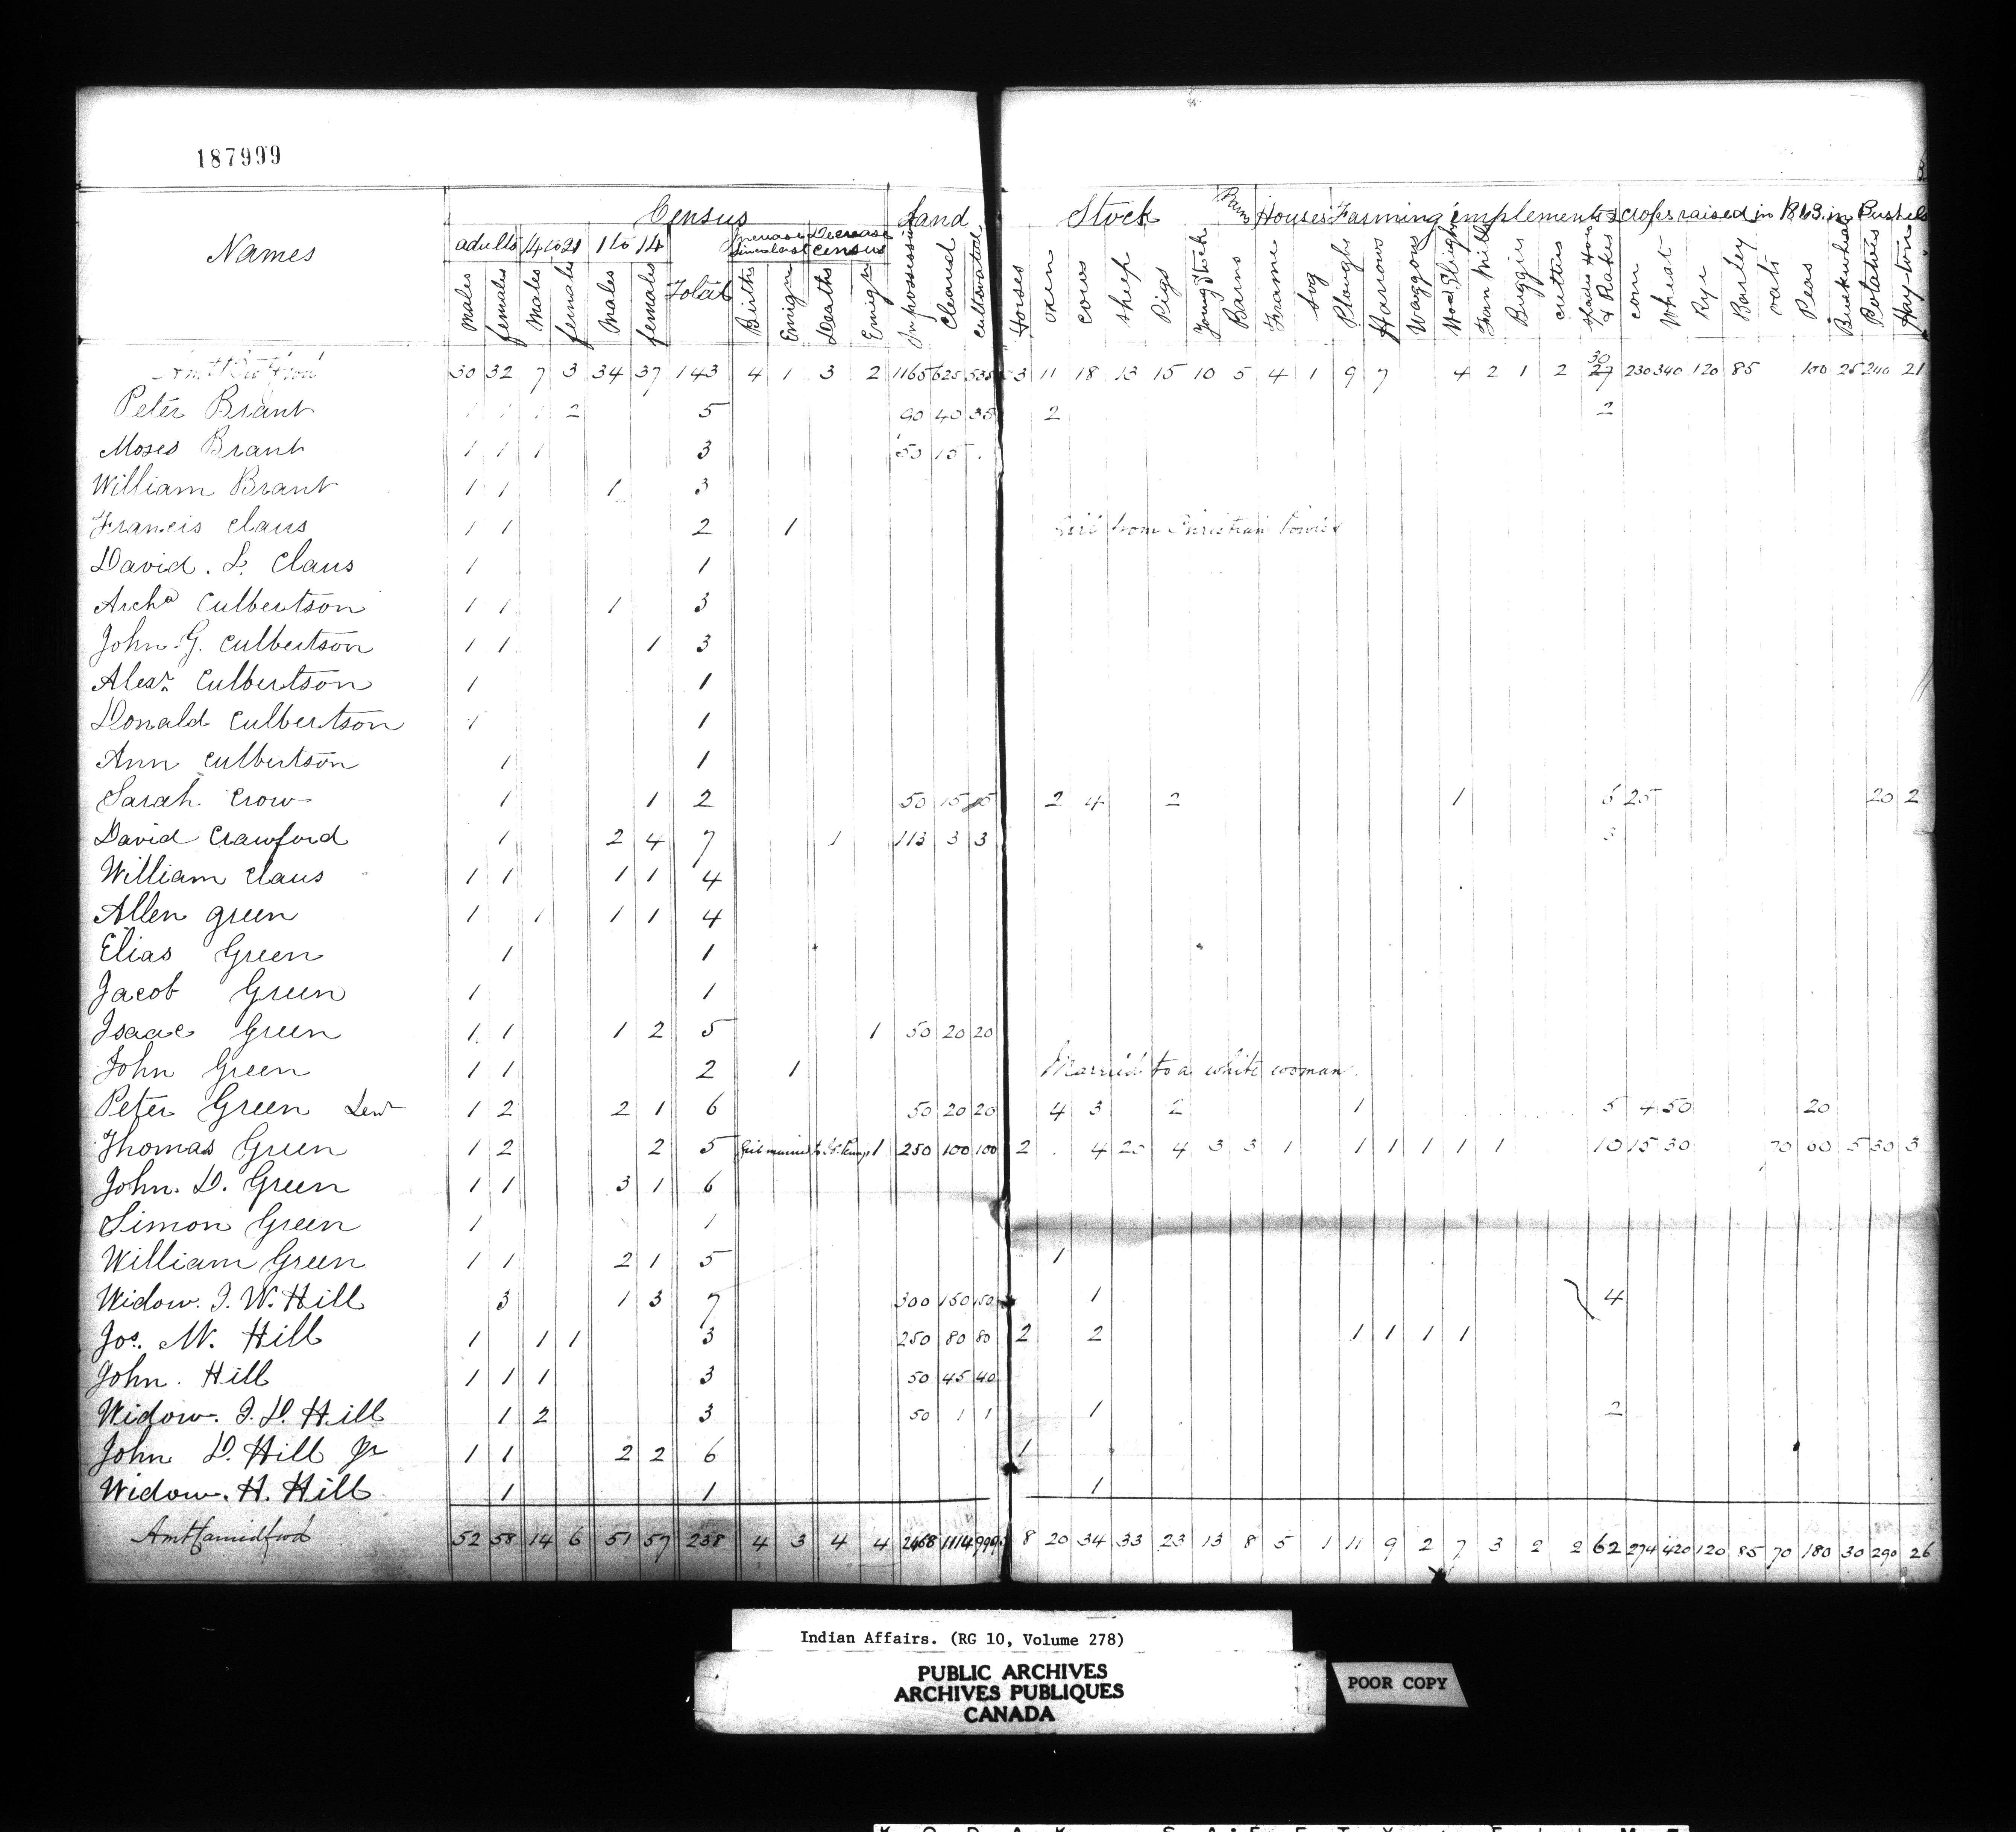 187999
Census Land Stock Barns Houses Farming implements crops raised in 1863 in Bushels
Names adults 14 to 21 1 to 14 Total Increase since last Decrease census
Males females Males females Males females Births Emig Deaths Emig In possession Cleared cultivated Horses oxen cows sheep Pigs Young Stock Barns Frame Log Ploughs Harrows Waggons Wood Sleighs Fan Mills Buggies cutters Spades Hoes & Rakes corn Wheat Rye Barley oats Peas Buckwheat Potatoes Hay-tons
30 32 7 3 34 37 143 4 1 3 2 1165 625 535 3 11 18 13 15 10 5 4 1 9 7 4 2 1 2 30 27 230 340 120 85 100 25 240 21
Peter Brant 1 1 1 2 5 90 40 35 2 2
Moses Brant 1 1 1 3 50 15
William Brant 1 1 1 3
Francis Claus 1 1 2 1 from Christian
David. L. Claus 1 1
Archd Culbertson 1 1 1 3
John. G. Culbertson 1 1 1 3
Alexr. Culbertson 1 1
Donald Culbertson 1 1
Ann Culbertson 1 1
Sarah Crow 1 1 2 50 15 15 2 4 2 1 5 25 20 2
David Crawford 1 2 4 7 1 113 3 3 3
William Claus 1 1 1 1 4
Allen green 1 1 1 1 4
Elias Green 1 1
Jacob Green 1 1
Isaac Green 1 1 1 2 5 1 50 20 20
John Green 1 1 2 1 Married to a white woman.
Peter Green 1 2 2 1 6 50 20 20 4 3 2 1 5 4 50 20
Thomas Green 1 2 2 5 married to 1 250 100 100 2 4 20 4 3 3 1 1 1 1 1 1 10 15 30 70 60 5 30 3
John. D. Green 1 1 3 1 6
Simon Green 1 1
William Green 1 1 2 1 5 1
Widow. J. W. Hill 3 1 3 7 300 150 150 1 4
Jos. W. Hill 1 1 1 3 250 80 80 2 2 1 1 1 1
John. Hill 1 1 1 3 50 45 40
Widow. J. D. Hill 1 2 3 50 1 1 1 2
John D. Hill Jr 1 1 2 2 6 1
Widow. H. Hill 1 1 1
Amt Carried fwd 52 58 14 6 51 57 238 4 3 4 4 2468 1114 999 8 20 34 33 23 13 8 5 1 11 9 2 7 3 2 2 62 274 420 120 85 70 180 30 290 26
Indian Affairs. (RG 10, Volume 278)
PUBLIC ARCHIVES
ARCHIVES PUBLIQUES
CANADA
POOR COPY